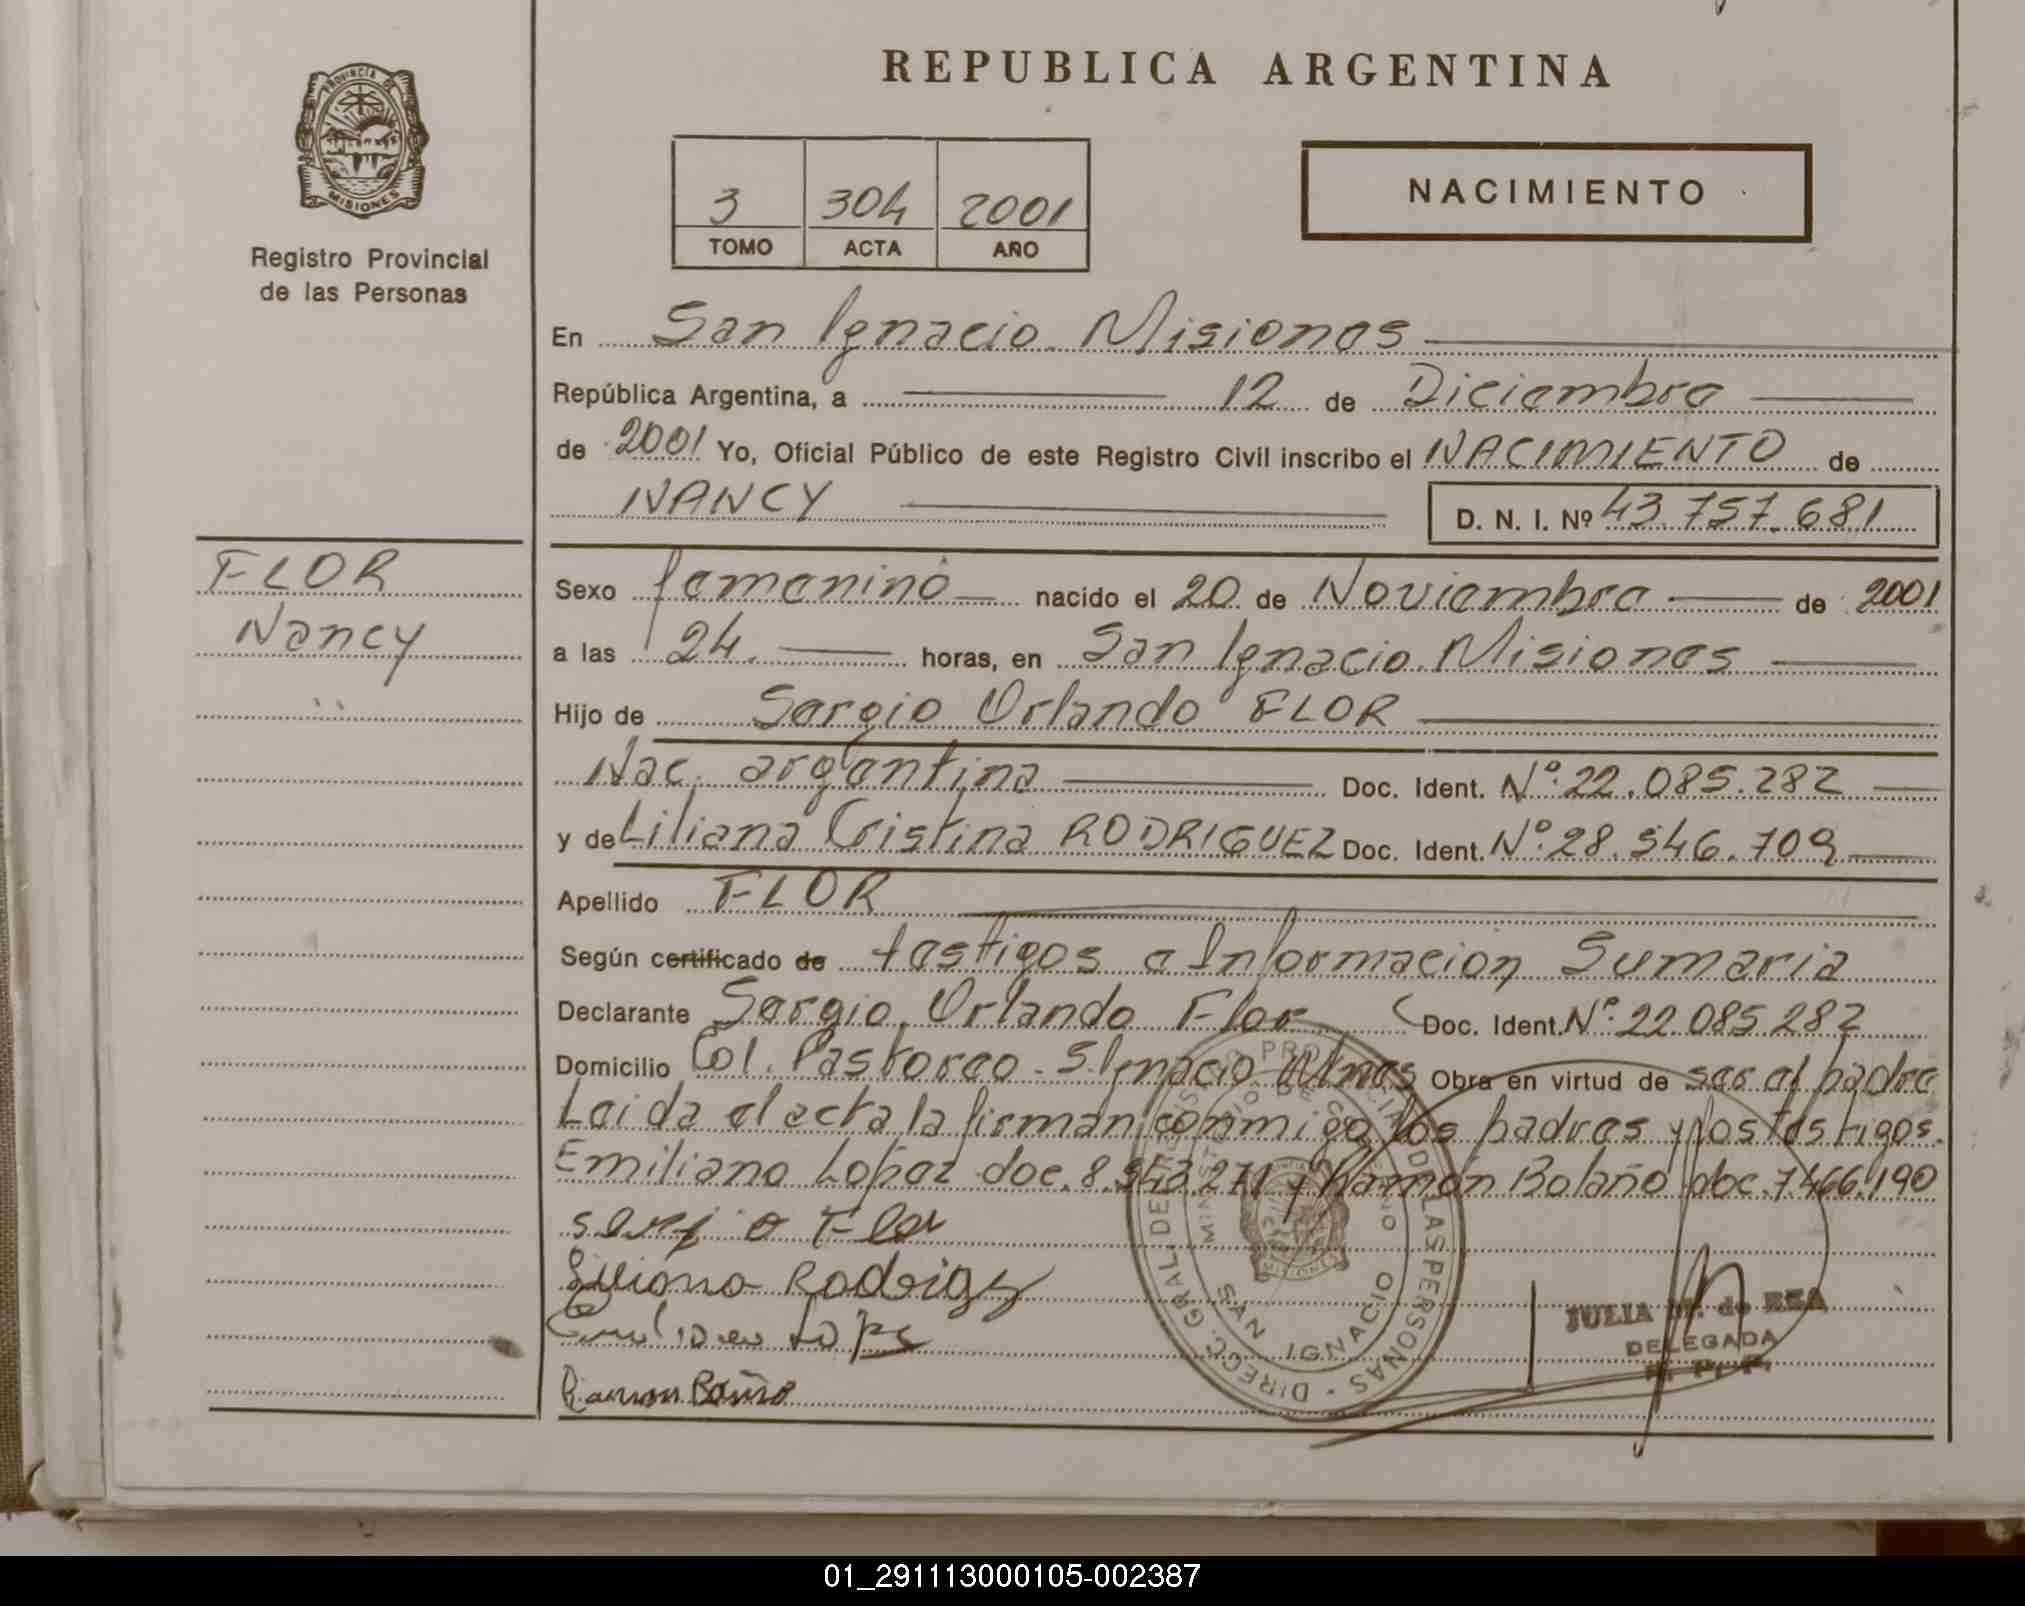 REPUBLICA ARGENTINA
PROVINCIA DE
MISIONES
Registro Provincial
de las Personas
3 304 2001
TOMO ACTA AÑO
NACIMIENTO
En San Ignacio Misiones
República Argentina, a 12 de Diciembre
de 2001 Yo, Oficial Público de este Registro Civil inscribo el NACIMIENTO de
NANCY D. N. I. Nº 43.757.681
FLOR
Nancy
Sexo femenino nacido el 20 de Noviembre de 2001
a las 24. horas, en San Ignacio Misiones
Hijo de Sergio Orlando FLOR
Nac. argentina Doc. Ident. Nº 22.085.282
y de Liliana Cristina RODRIGUEZ Doc. Ident. Nº 28.546.709
Apellido FLOR
Según certificado de testigos e Información Sumaria
Declarante Sergio Orlando Flor Doc. Ident. Nº 22.085.282
Domicilio Col. Pastoreo - S. Ignacio Mnes Obra en virtud de ser el padre
Leida el acta la firman conmigo los padres y los testigos.
Emiliano Lopez doc. 8.543.271 y Ramón Bolaño doc. 7.466.190
serjio Flor
Liliana Rodrigz
Emiliano Lopes
Ramon
DIRECC. GRAL. DE REGISTRO PROVINCIAL DE LAS PERSONAS
MINISTERIO DE GOBIERNO
SAN IGNACIO
JULIA M. de REA
DELEGADA
R. P. P.
01_291113000105-002387